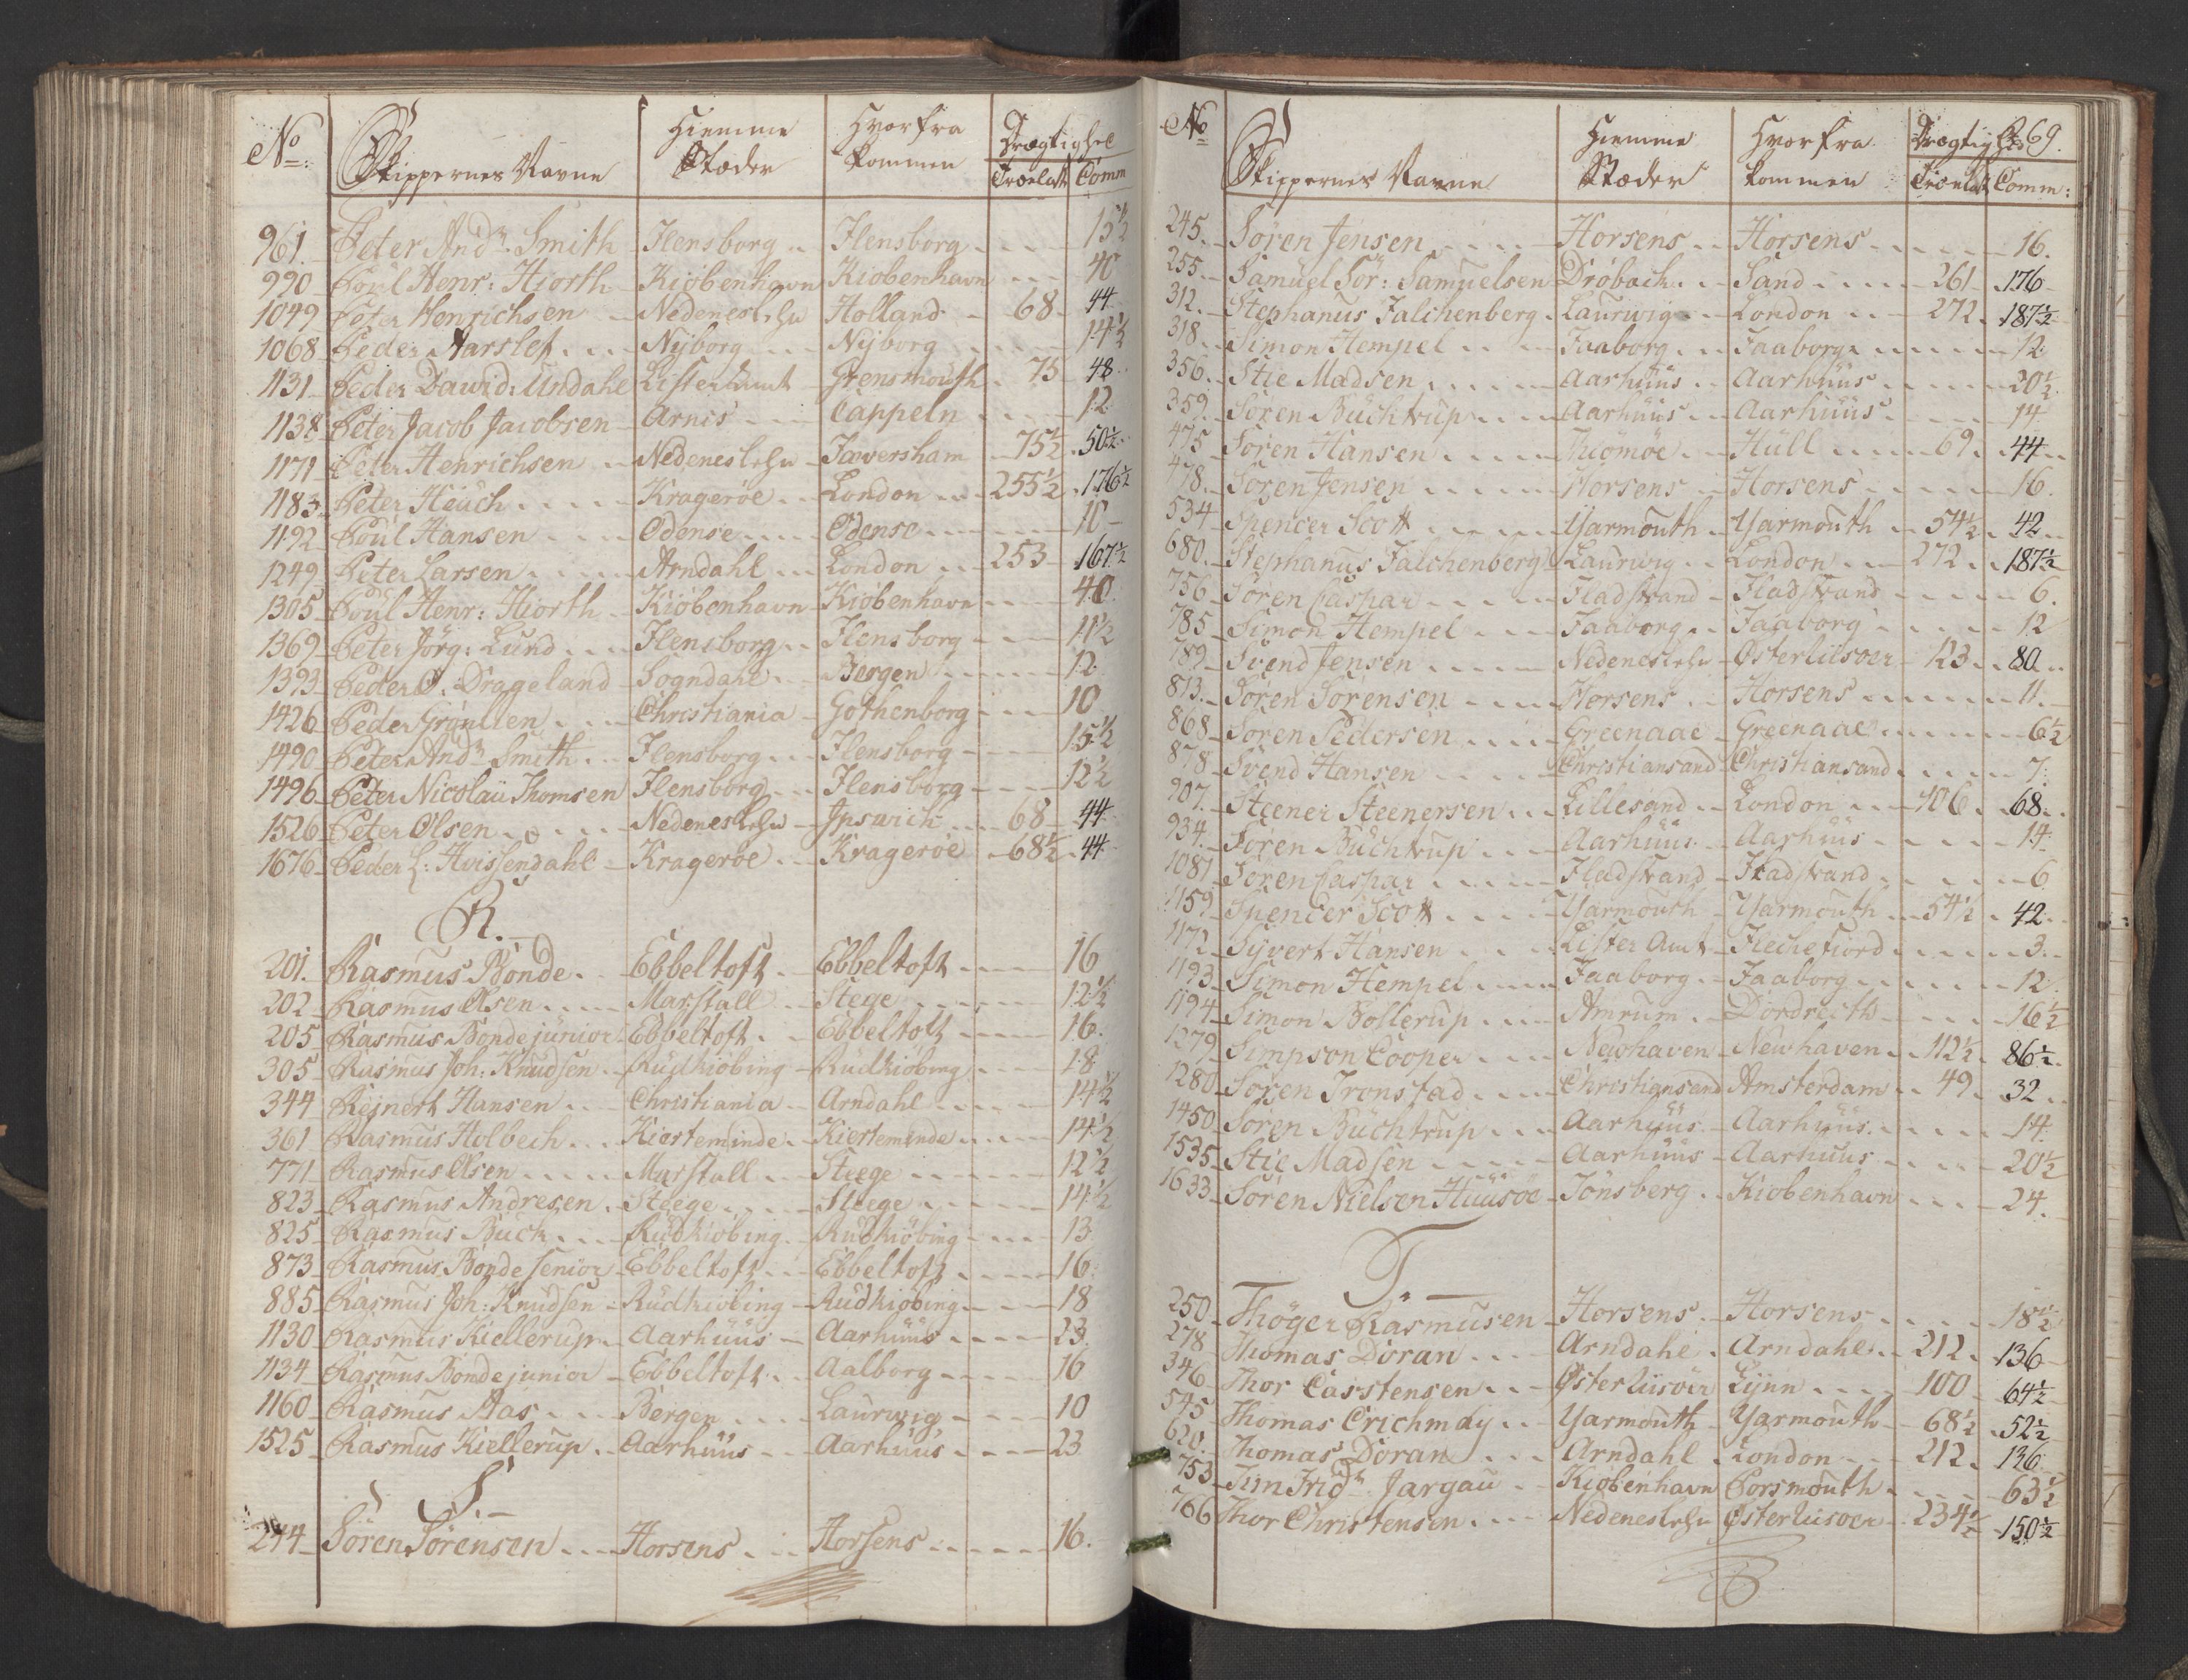 No: Skippernes Navne Hiemme Stæder Hvorfra kommen Drægtighed
Trælast Comm
961. Peter Andr. Smith Flensborg Flensborg 15½
990 Poul Henr: Hiorth Kiöbenhavn Kiöbenhavn 40
1049 Peter Henrichsen Nedenes Lehn Holland 68 44
1068 Peder Aarslef Nÿborg Nÿborg 14½
1131 Peder Dawid: Undahl Lister Amt Grensmouth 75 48
1138 Peter Jacob Jacobsen Arnis Cappeln 12
1171 Peter Henrichsen Nedenes Lehn Faversham 75½ 50½
1183 Peter Heuch Kragerøe London 255½ 176½
1192 Poul Hansen Odense Odense 10
1249 Peter Larsen Arndahl London 253 167½
1305 Poul Henr: Hiorth Kiöbenhavn Kiöbenhavn 40
1369 Peter Jörg: Lund Flensborg Flensborg 11½
1393 Peder O: Drageland Sogndahl Bergen 12
1426 Peder Grønlien Christiania Gothenborg 10
1490 Peter Andr Smith Flensborg Flensborg 15½
1496 Peter Nicolai Thomsen Flensborg Flensborg 12½
1526 Peter Olsen Nedenes Lehn Ipswich 68 44
1676 Peder L: Hvissendahl Kragerøe Kragerøe 68½ 44
R.
201. Rasmus Bonde Ebbeltoft Ebbeltoft 16
202 Rasmus Olsen Marstall Stege 12½
205 Rasmus Bonde junior Ebbeltoft Ebbeltoft 16.
305 Rasmus Joh: Knudsen Rudkiöbing Rudkiöbing 18
344 Reinert Hansen Christiania Arndahl 14½
361 Rasmus Holbech Kierteminde Kierteminde 14½
771 Rasmus Olsen Marstall Steege 12½
823 Rasmus Andresen Steege Steege 14½
825 Rasmus Buch Rudkiöbing Rudkiöbing 13
873 Rasmus Bonde senior Ebbeltoft Ebbeltoft 16.
885 Rasmus Joh: Knudsen Rudkiöbing Rudkiöbing 18
1130 Rasmus Kiellerup Aarhuus Aarhuus 23.
1134 Rasmus Bonde junior Ebbeltoft Aalborg 16
1160 Rasmus Aas Bergen Laurwig 10
1525 Rasmus Kiellerup Aarhuus Aarhuus 23
S.
244 Sören Sörensen Horsens Horsens 16.
No Skippernes Navne Hiemme Stæder Hvorfra kommen Drægtighed 69.
Trælast Comm:
245. Sören Jensen Horsens Horsens 16.
255 Samuel Sör: Samuelsen Dröbach Sand 261 176
312. Stephanus Falchenberg Laurwig London 272 187½
318. Simon Hempel Faaborg Faaborg 12.
356. Stie Madsen Aarhuus Aarhuus 20½
359. Sören Buchtrup Aarhuus Aarhuus 14
475 Sören Hansen Thiömöe Hull 69. 44
478. Sören Jensen Horsens Horsens 16.
534 Spencer Scott Yarmouth Yarmouth 54½ 42
680. Stephanus Falchenberg Laurwig London 272 187½
756 Sören Caspar Fladstrand Fladstrand 6.
785 Simon Hempel Faaborg Faaborg 12
789 Svend Jensen Nedenes Lehn Østerliisoer 123 80
813. Sören Sörensen Horsens Horsens 11.
868 Sören Pedersen Greenaae Greenaae 6½
878 Svend Hansen Christiansand Christiansand 7.
907. Steener Steenersen Lillesand London 106 68.
934. Sören Buchtrup Aarhuus Aarhuus 14.
1081 Sören Caspar Fladstrand Fladstrand 6
1159 Spencer Scott Yarmouth Yarmouth 54½ 42
1172 Syvert Hansen Lister Amt Flechefiord 3.
1193 Simon Hempel Faaborg Faaborg 12.
1194 Simon Bollerup Amrum Dordrecth 16½
1279 Simpson Cooper Newhaven Newhaven 112½ 86½
1280 Sören Tronstad Christiansand Amsterdam 49. 32
1450 Sören Buchtrup Aarhuus Aarhuus 14.
1535 Stie Madsen Aarhuus Aarhuus 20½
1633 Sören Nielsen Huusöe Tönsberg Kiöbenhavn 24.
T.
250. Thöger Rasmusen Horsens Horsens 18½
278 Thomas Doran Arndahl Arndahl 212. 136
346 Thor Carstensen Østerliisöer Lÿnn 100 64½
545 Thomas Crichmay Yarmouth Yarmouth 68½ 52½
620. Thomas Doran Arndahl London 212. 136
753 Tim Fridr Jargau Kiöbenhavn Porsmouth 63½
766 Thor Christensen Nedenes Lehn Østerliisoer 234½ 150½